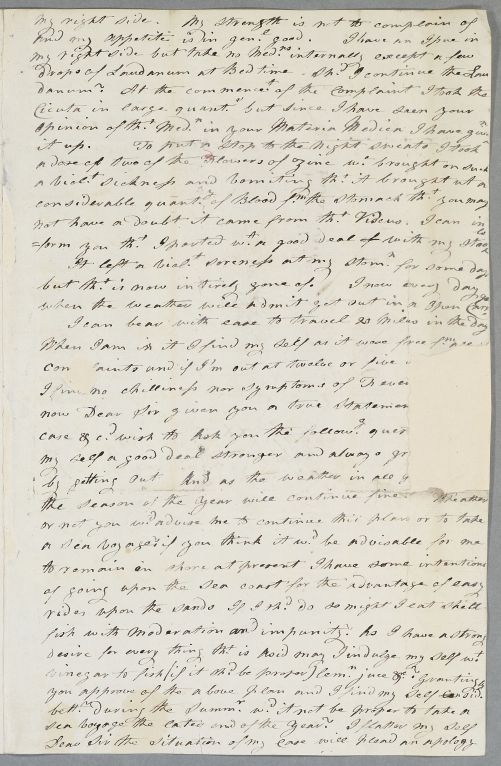 my right side. My strength is not to complain of
And my appetite is in genl. good. I have an Issue in
my right side but take no Medns. internally except a few
drops of Laudanum at Bed time. Shd. I continue the Lau
danum? At the commencet. of the Complaint I took the
Cicuta in large quant.y but since I have seen your
Opinion of tht. Medn. in your Materia Medica I have givn
it up. To put a Stop to the Night sweats I took
a dose or two of the Flowers of Zinc wc. brought on such
a violt. sickness and vomiting tht. it brought up a
considerable quant.y of Blood fm. the Stomach tht. you may
not have a doubt it came from tht. Viscus. I can in
=form you tht. I parted wt. a good deal of with my stools
It left a violt. soreness at my stomh. for some days
but tht. is now intirely gone of. I now every day
when the weather will admit get out in a Open Carr
I can bear with ease to travel 20 Miles in the day
When I am in it I find my self as it were free fm. all
com aints and if I'm out at twelve or five
I fin no chilliness nor symptoms of Fever
now Dear Sir given you a true Statemen
case & c. wish to Ask you the followg. quer
my self a good deal stronger and always gr
by getting out And as the weather in all
the season of the Year will continue fine Wheather
or not you wd. advise me to continue this plan or to take
a sea Voyage? if you think it wd. be advisable for me
to remain on shore at present I have some intentions
of going upon the Sea coast for the advantage of easy
rides upon the sands If I shd. do so might I eat shell
fish with moderation and impunity? As I have a strong
desire for every thing tht. is Acid may I indulge my self wt.
vinegar to fish, if it shd. be proper lemn. juce &c.? Granting
you approve of the above plan and I find my self consid.
bettr. During the Summr. wd. it not be proper to take a
sea voyage the latter end of the Year? I flatter my self
Dear Sir the situation of my case will plead an apology